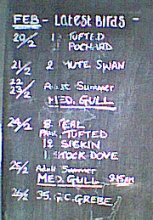 FEB - Latest Birds -
20/2 1 TUFTED
1 POCHARD
21/2 2 MUTE SWAN
22/2 Adult Summer
23/2 MED. GULL
24/2 8 TEAL
TUFTED
12 SISKIN
1 STOCK DOVE
25/2 Adult Summer
MED. GULL 9.15AM
26/2 35. G.C. GREBE